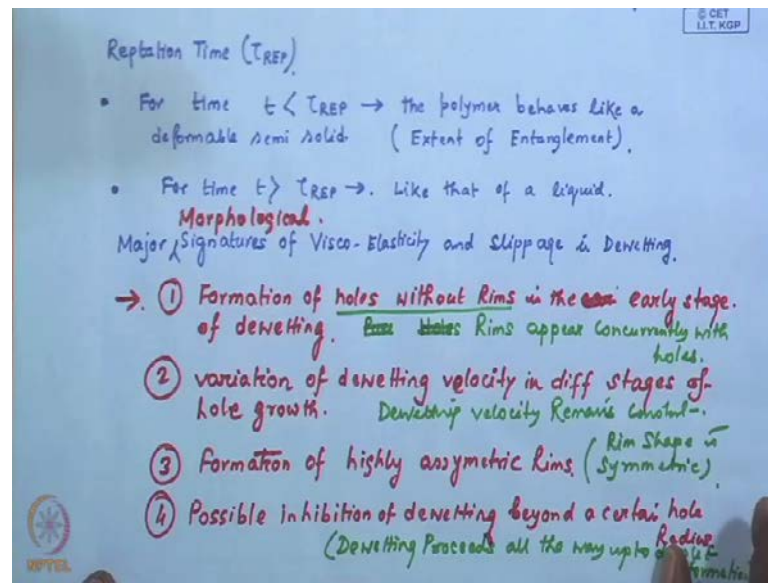 © CET
I.I.T. KGP
Reptation Time (τREP).
• For time t < τREP → the polymer behaves like a
deformable semi solid. (Extent of Entanglement).
• For time t > τREP →. Like that of a liquid.
Morphological.
Major ∧ Signatures of Visco-Elasticity and Slippage in Dewetting.
→. ① Formation of holes without Rims in the early stage.
of dewetting. Rims appear concurrently with
holes.
② variation of dewetting velocity in diff stages of
hole growth. Dewetting velocity Remains Constant-.
③ Formation of highly assymetric Rims. (Rim Shape is
Symmetric).
④ Possible inhibition of dewetting beyond a certain hole
Radius.
(Dewetting Proceeds all the way upto
formation
NPTEL